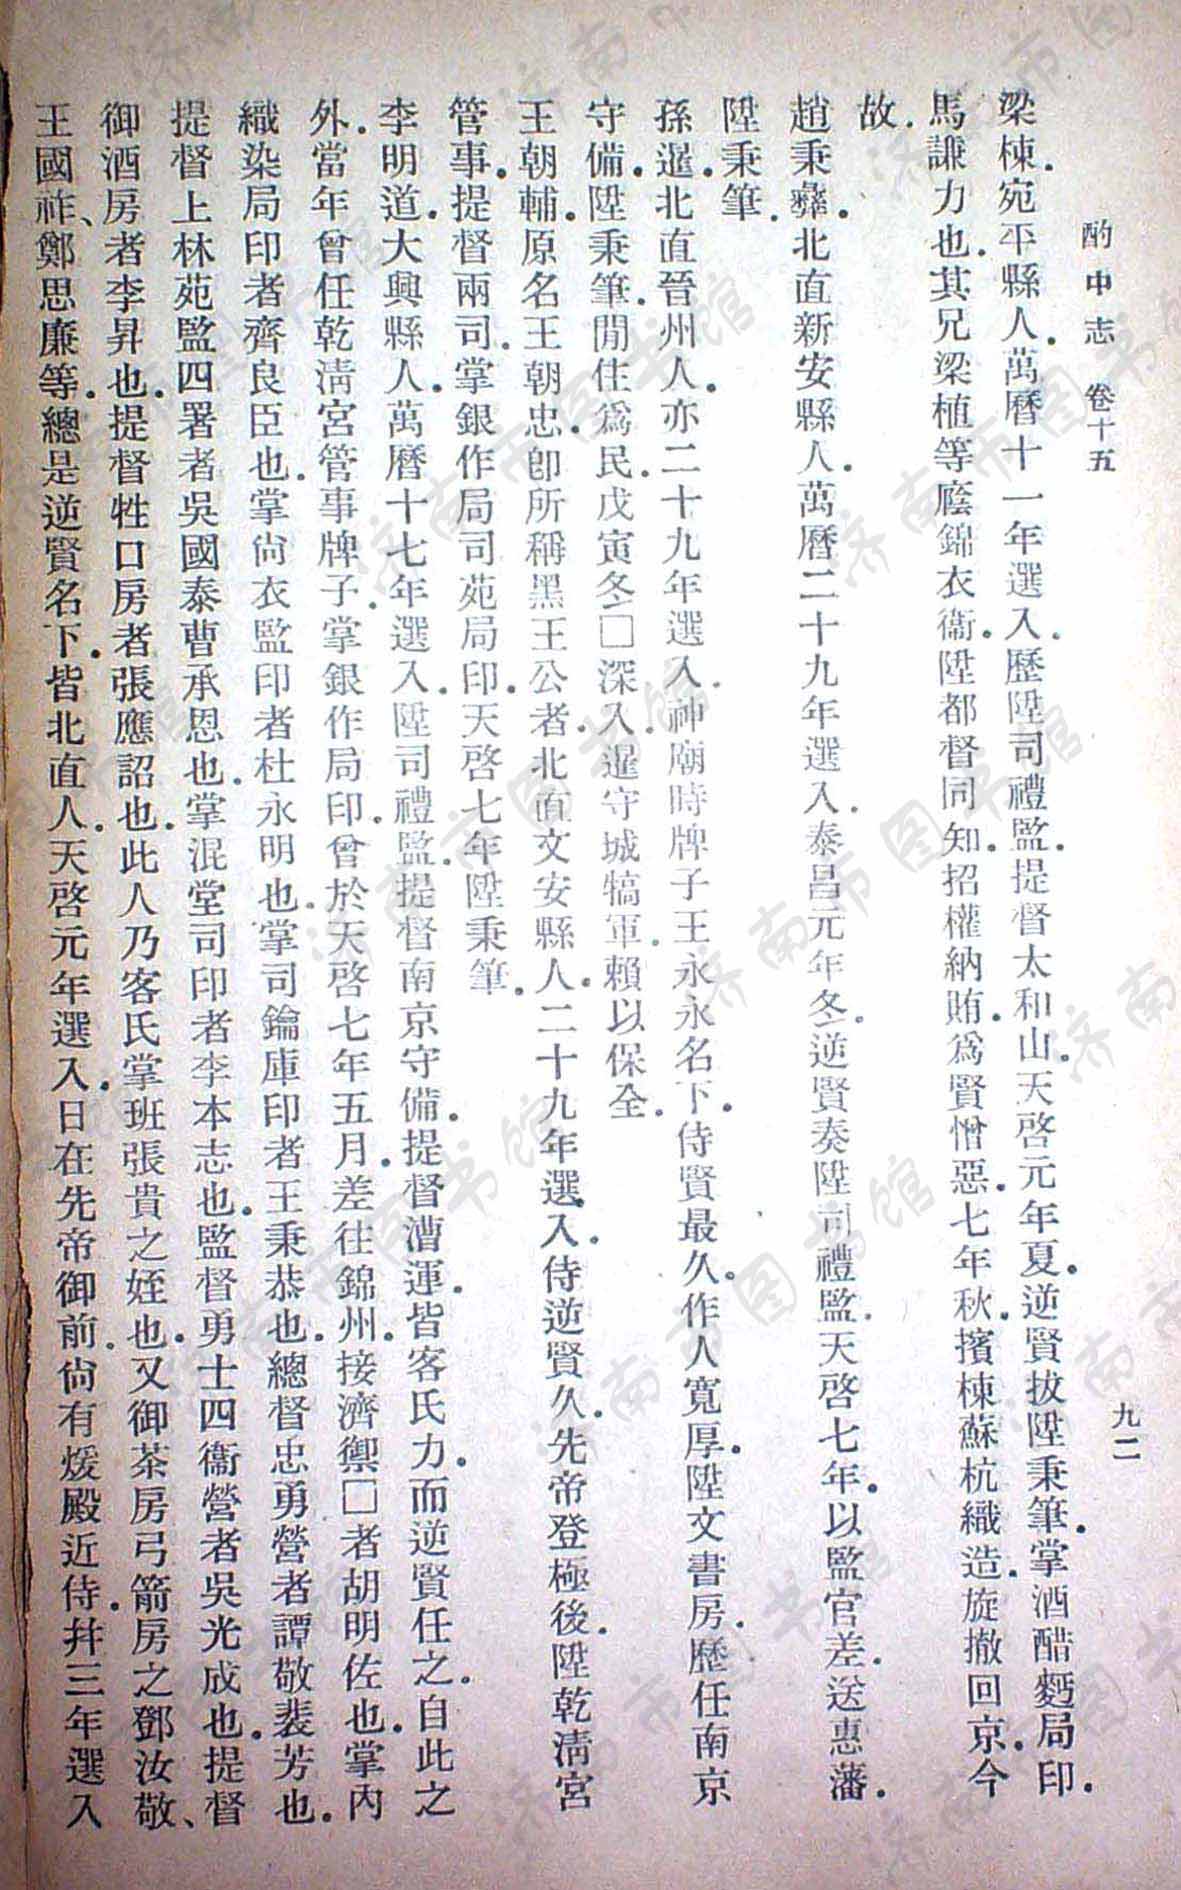 酌中志　卷十五　九二
梁棟．宛平縣人．萬曆十一年選入．歷陞司禮監．提督太和山．天啓元年夏．逆賢拔陞秉筆．掌酒醋麪局印．
馬謙力也．其兄梁植等廕錦衣衞．陞都督同知．招權納賄．爲賢憎惡．七年秋．擯棟蘇杭織造．旋撤回京．今
故．
趙秉彝．北直新安縣人．萬曆二十九年選入．泰昌元年冬．逆賢奏陞司禮監．天啓七年．以監官差．送惠藩．
陞秉筆．
孫暹．北直晉州人．亦二十九年選入．神廟時牌子王永永名下．侍賢最久．作人寬厚．陞文書房．歷任南京
守備．陞秉筆．閒住．爲民．戊寅冬．□深入．暹守城犒軍．賴以保全．
王朝輔．原名王朝忠．卽所稱黑王公者．北直文安縣人．二十九年選入．侍逆賢久．先帝登極後．陞乾淸宮
管事．提督兩司．掌銀作局司苑局印．天啓七年陞秉筆．
李明道．大興縣人．萬曆十七年選入．陞司禮監．提督南京守備．提督漕運．皆客氏力．而逆賢任之．自此之
外．當年曾任乾淸宮管事牌子．掌銀作局印．曾於天啓七年五月．差往錦州．接濟禦□者胡明佐也．掌內
織染局印者齊良臣也．掌尙衣監印者杜永明也．掌司鑰庫印者王秉恭也．總督忠勇營者譚敬裴芳也．
提督上林苑監四署者吳國泰曹承恩也．掌混堂司印者李本志也．監督勇士四衞營者吳光成也．提督
御酒房者李昇也．提督牲口房者張應詔也．此人乃客氏掌班張貴之姪也．又御茶房弓箭房之鄧汝敬、
王國祚、鄭思廉等．總是逆賢名下．皆北直人．天啓元年選入．日在先帝御前．尙有煖殿近侍．幷三年選入